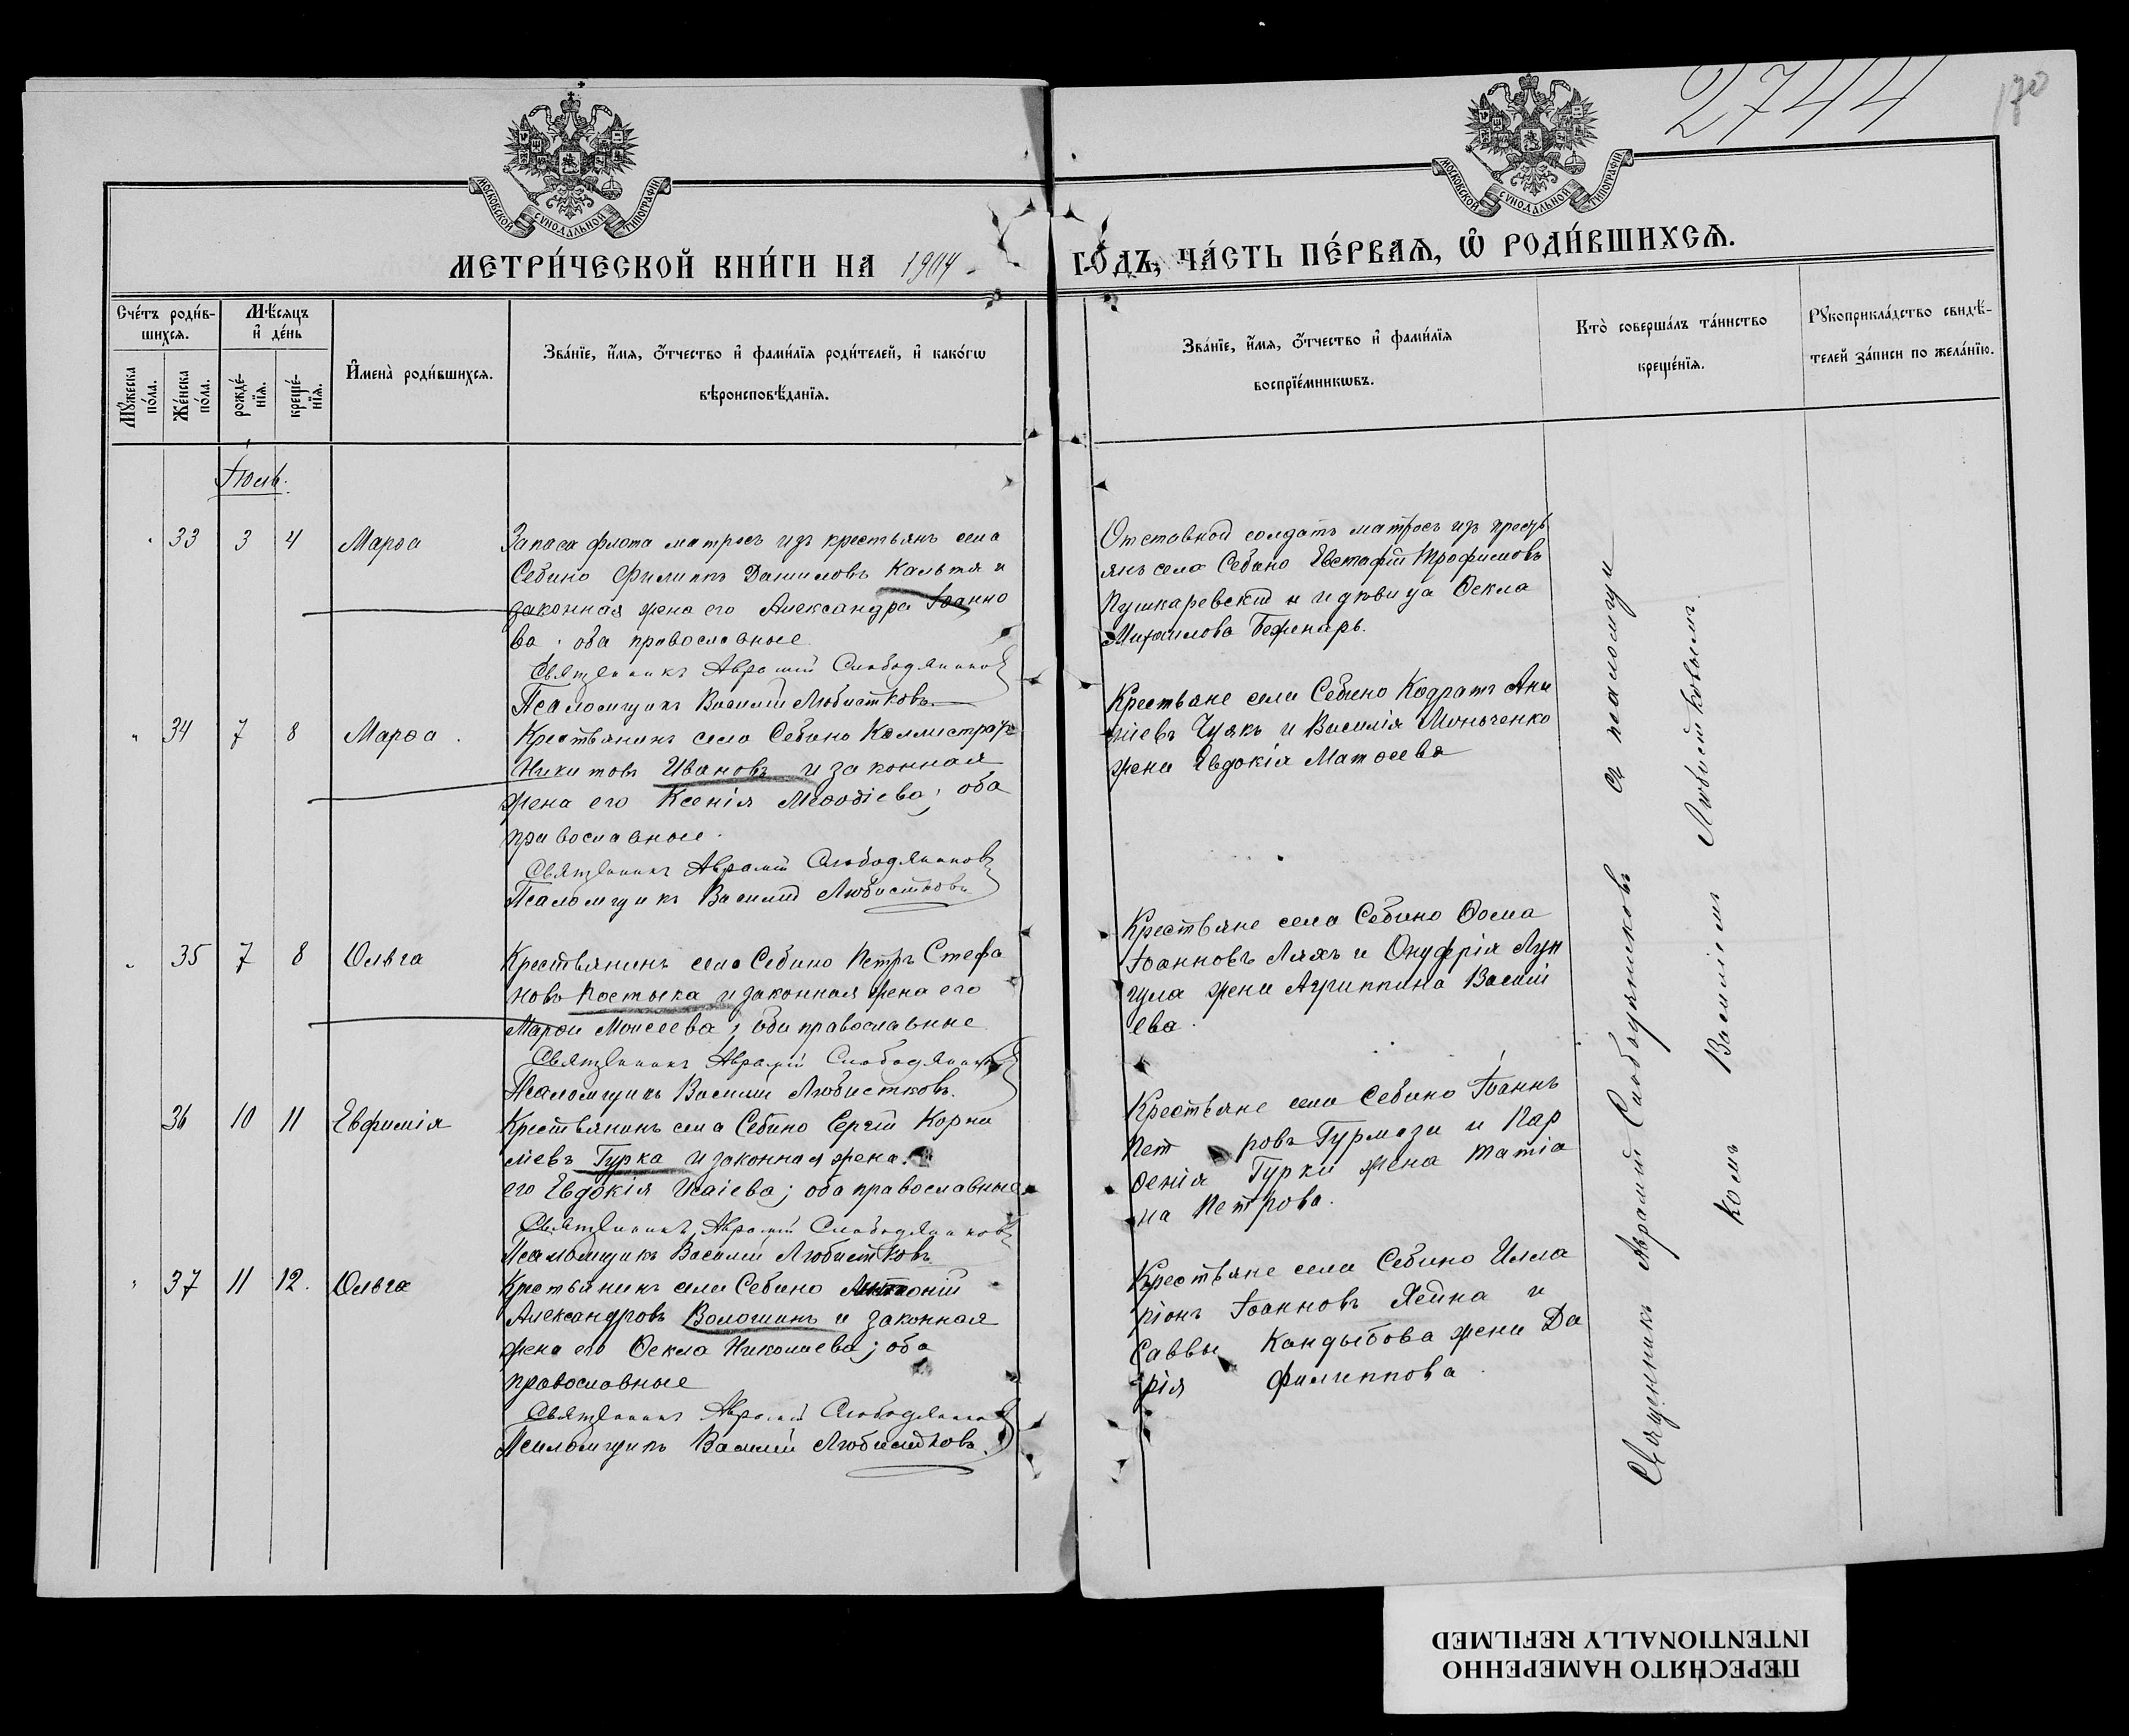 2744
170
МОСКОВСКОЙ СѴНОДАЛЬНОЙ ТИПОГРАФІИ
МОСКОВСКОЙ СѴНОДАЛЬНОЙ ТИПОГРАФІИ
МЕТРИ́ЧЕСКОЙ КНИ́ГИ НА 1904
ГО́ДЪ, ЧА́СТЬ ПЕ́РВАѦ, Ѽ РОДИ́ВШИХСѦ.
Сче́тъ роди́в-
шихсѧ.
Мѣ́сѧцъ
и҆ де́нь
Мꙋ́жеска
по́ла.
Же́нска
по́ла.
рожде́-
нїѧ.
креще́-
нїѧ.
И҆мена̀ роди́вшихсѧ.
Зва́нїе, и҆́мѧ, ѻ҆́тчество и҆ фами́лїѧ роди́телей, и҆ како́гѡ
вѣроисповѣ́данїѧ.
Зва́нїе, и҆́мѧ, ѻ҆́тчество и҆ фами́лїѧ
воспрїе́мникѡвъ.
Кто̀ соверша́лъ та́инство
креще́нїѧ.
Рꙋкоприкла́дство свидѣ́-
телей за́писи по жела́нїю.
Іюль.
33 3 4 Марѳа
Запаса флота матросъ изъ крестьянъ села
Себино Филиппъ Даниловъ Кальтя и
законная жена его Александра Іоанно
ва; оба православные
Священникъ Аврамій Слободяниковъ
Псаломщикъ Василій Любистковъ
Отставной солдатъ матросъ изъ кресть
янъ села Себино Евстафій Трофимовъ
Пушкаревскій и вдовица Ѳекла
Михаилова Беженарь.
34 7 8 Марѳа
Крестьянинъ села Себино Каллистратъ
Никитовъ Ивановъ и законная
жена его Ксенія Меѳодіева; оба
православные.
Священникъ Аврамій Слободяниковъ
Псаломщикъ Василій Любистковъ
Крестьяне села Себино Кодратъ Ана
ніевъ Чуякъ и Василія Моньченко
жена Евдокія Матѳеева
35 7 8 Ольга
Крестьянинъ села Себино Петръ Стефа
новъ Постыка и законная жена его
Марѳа Моисеева; оба православные
Священникъ Аврамій Слободяниковъ
Псаломщикъ Василій Любистковъ.
Крестьяне села Себино Ѳома
Іоанновъ Ляхъ и Онуфрія Лун
гула жена Агриппина Василі
ева.
36 10 11 Евфимія
Крестьянинъ села Себино Сергій Корни
ліевъ Гурка и законная жена
его Евдокія Исаіева; оба православные
Священникъ Аврамій Слободяниковъ
Псаломщикъ Василій Любистковъ
Крестьяне села Себино Іоаннъ
Пет ровъ Гурмаза и Пар
ѳенія Гурки жена Татіа
на Петрова.
37 11 12. Ольга
Крестьянинъ села Себино Антоній
Александровъ Волошинъ и законная
жена его Ѳекла Николаева; оба
православные
Священникъ Аврамій Слободяниковъ
Псаломщикъ Василій Любистковъ.
Крестьяне села Себино Илла
ріонъ Іоанновъ Хейна и
Саввы Кандыбова жена Да
рія Филиппова.
Священникъ Аврамій Слободяниковъ съ псаломщи
комъ Василіемъ Любистковымъ.
ПЕРЕСНЯТО НАМЕРЕННО
INTENTIONALLY REFILMED